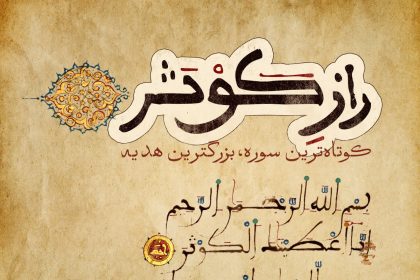 راز کوثر
کوتاه‌ترین سوره، بزرگترین هدیه
بسم الله الرحمر الرحيم
انا اعطيناك الكوثر